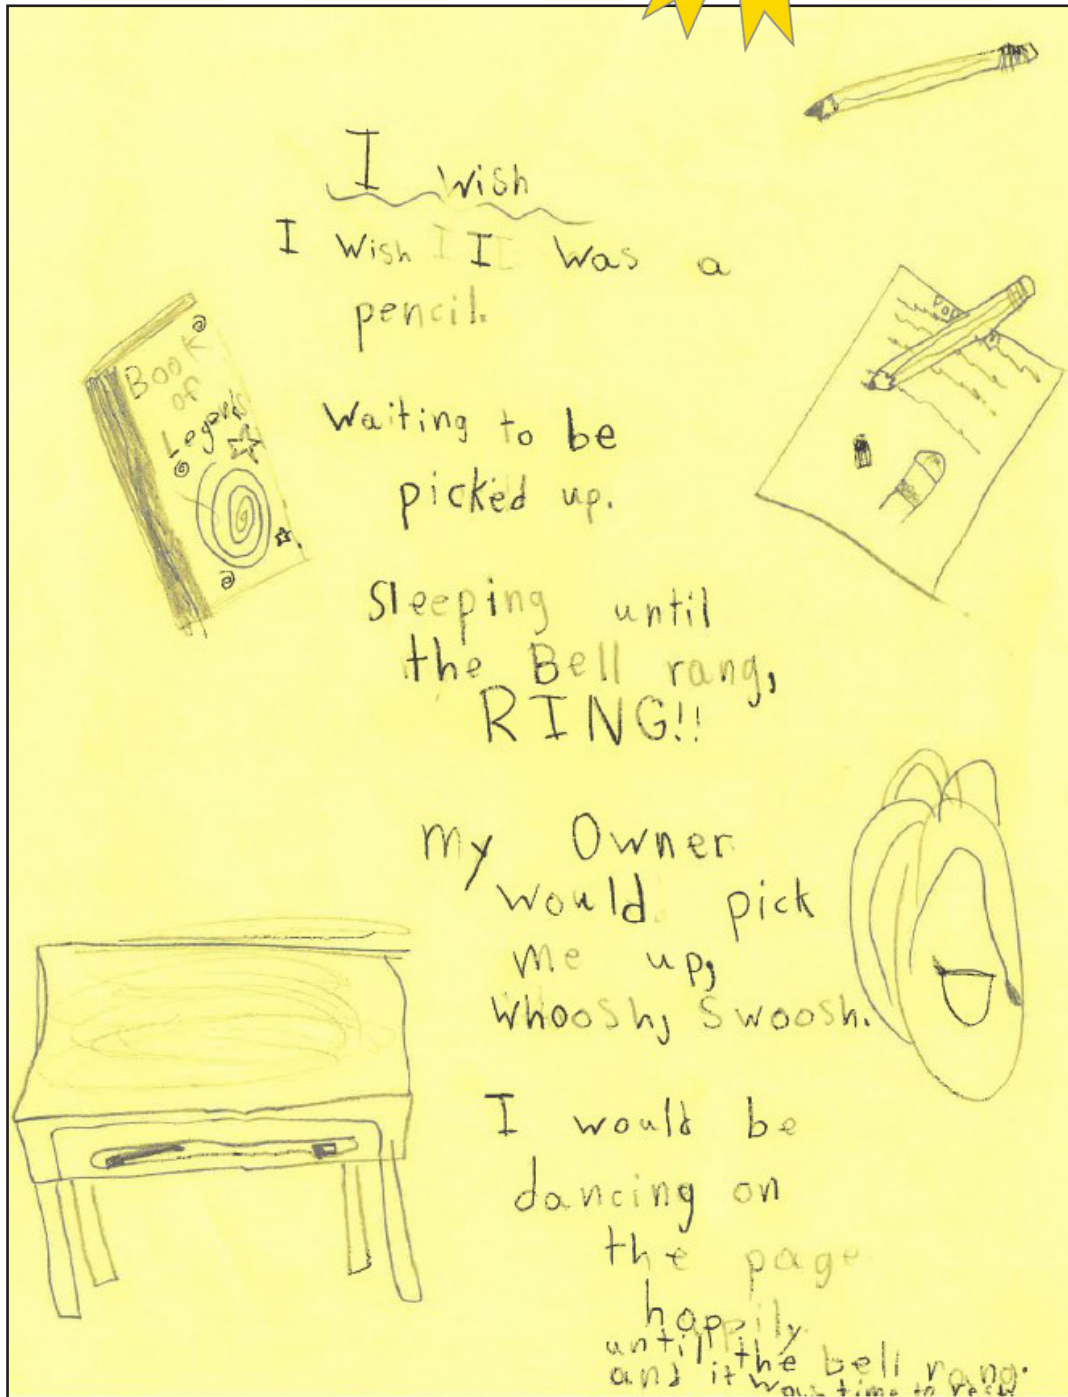 I Wish
I Wish I was a
pencil.
Waiting to be
picked up.
Sleeping until
the Bell rang,
RING!!
My Owner
would pick
me up,
Whoosh, Swoosh.
I would be
dancing on
the page
happily
until the bell rang.
and it was time to rest
Book
of
Legends